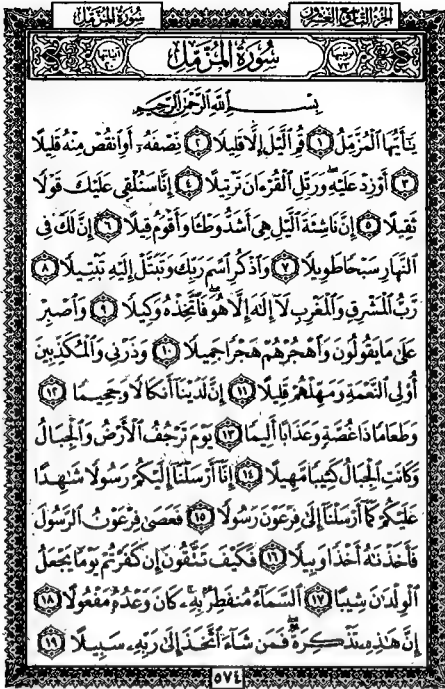 سُورَةُ المُزَّمِّل
الجزء التاسع والعشرون
سُورَةُ المُزَّمِّلِ
بِسْمِ اللَّهِ الرَّحْمَٰنِ الرَّحِيمِ
يَٰٓأَيُّهَا ٱلْمُزَّمِّلُ ١ قُمِ ٱلَّيْلَ إِلَّا قَلِيلًا ٢ نِّصْفَهُۥٓ أَوِ ٱنقُصْ مِنْهُ قَلِيلًا
٣ أَوْ زِدْ عَلَيْهِ وَرَتِّلِ ٱلْقُرْءَانَ تَرْتِيلًا ٤ إِنَّا سَنُلْقِى عَلَيْكَ قَوْلًا
ثَقِيلًا ٥ إِنَّ نَاشِئَةَ ٱلَّيْلِ هِىَ أَشَدُّ وَطْـًٔا وَأَقْوَمُ قِيلًا ٦ إِنَّ لَكَ فِى
ٱلنَّهَارِ سَبْحًا طَوِيلًا ٧ وَٱذْكُرِ ٱسْمَ رَبِّكَ وَتَبَتَّلْ إِلَيْهِ تَبْتِيلًا ٨
رَّبُّ ٱلْمَشْرِقِ وَٱلْمَغْرِبِ لَآ إِلَٰهَ إِلَّا هُوَ فَٱتَّخِذْهُ وَكِيلًا ٩ وَٱصْبِرْ
عَلَىٰ مَا يَقُولُونَ وَٱهْجُرْهُمْ هَجْرًا جَمِيلًا ١٠ وَذَرْنِى وَٱلْمُكَذِّبِينَ
أُو۟لِى ٱلنَّعْمَةِ وَمَهِّلْهُمْ قَلِيلًا ١١ إِنَّ لَدَيْنَآ أَنكَالًا وَجَحِيمًا ١٢
وَطَعَامًا ذَا غُصَّةٍ وَعَذَابًا أَلِيمًا ١٣ يَوْمَ تَرْجُفُ ٱلْأَرْضُ وَٱلْجِبَالُ
وَكَانَتِ ٱلْجِبَالُ كَثِيبًا مَّهِيلًا ١٤ إِنَّآ أَرْسَلْنَآ إِلَيْكُمْ رَسُولًا شَٰهِدًا
عَلَيْكُمْ كَمَآ أَرْسَلْنَآ إِلَىٰ فِرْعَوْنَ رَسُولًا ١٥ فَعَصَىٰ فِرْعَوْنُ ٱلرَّسُولَ
فَأَخَذْنَٰهُ أَخْذًا وَبِيلًا ١٦ فَكَيْفَ تَتَّقُونَ إِن كَفَرْتُمْ يَوْمًا يَجْعَلُ
ٱلْوِلْدَٰنَ شِيبًا ١٧ ٱلسَّمَآءُ مُنفَطِرٌۢ بِهِۦ كَانَ وَعْدُهُۥ مَفْعُولًا ١٨
إِنَّ هَٰذِهِۦ تَذْكِرَةٌ فَمَن شَآءَ ٱتَّخَذَ إِلَىٰ رَبِّهِۦ سَبِيلًا ١٩
٥٧٤